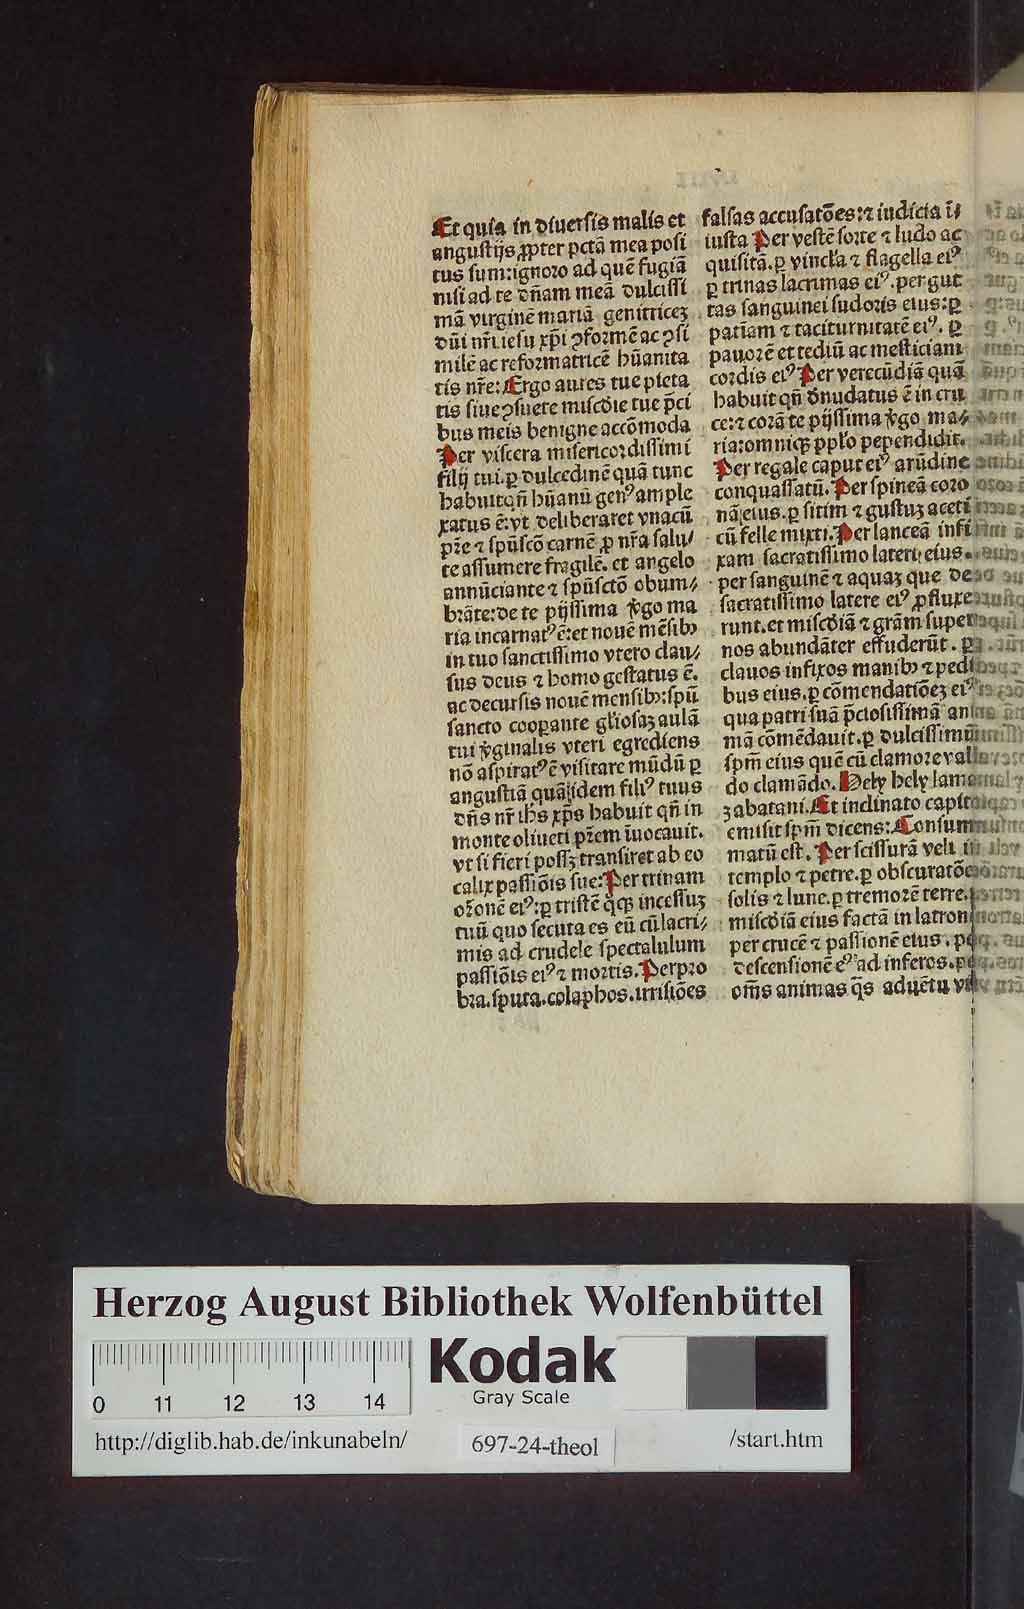 Et quia in diuersis malis et
angustijs ꝓpter pctā mea posi
tus sum: ignoro ad quē fugiā
nisi ad te dn̄am meā dulcissi
mā virginē mariā genitricez
dn̄i nr̄i iesu xp̄i ꝯformē ac ꝯsi
milē ac reformatricē hūanita
tis nr̄e: Ergo aures tue pieta
tis siue ꝯsuete mis͛cdie tue p̄ci
bus meis benigne accōmoda
Per viscera misericordissimi
filij tui. ꝑ dulcedinē quā tunc
habuit qn̄ hūanū genꝰ ample
xatus ē: vt deliberaret vnacū
pr̄e ⁊ spūscō carnē ꝓ nr̄a salu⸗
te assumere fragilē. et angelo
annūciante ⁊ spūsctō obum⸗
brāte: de te pijssima v̓go ma
ria incarnatꝰ ē: et nouē mēsibꝫ
in tuo sanctissimo vtero clau⸗
sus deus ⁊ homo gestatus ē.
ac decursis nouē mensibꝫ: spū
sancto cooꝑante gl̓iosaz aulā
tui v̓ginalis vteri egrediens
nō aspiratꝰ ē visitare mūdū ꝑ
angustiā quā idem filiꝰ tuus
dn̄s nr̄ ih̄s xp̄s habuit qn̄ in
monte oliueti pr̄em īuocauit.
vt si fieri possꝫ transiret ab eo
calix passiōis sue: Per trinam
or̄onē eiꝰ: ꝑ tristē qͦqꝫ incessuz
tuū quo secuta es eū cū lacri⸗
mis ad crudele spectalulum
passiōis eiꝰ ⁊ mortis. Per pro
bra. sputa. colaphos. irrisiōes
falsas accusatōes: ⁊ iudicia ī⸗
iusta Per vestē sorte ⁊ ludo ac
quisitā. ꝑ vincl̓a ⁊ flagella eiꝰ
ꝑ trinas lacrimas eiꝰ. per gut
tas sanguinei sudoris eius: ꝑ
patīam ⁊ taciturnitatē eiꝰ. ꝑ
pauorē et tediū ac mesticiam
cordis eiꝰ Per verecūdiā quā
habuit qn̄ d̓nudatus ē in cru
ce: ⁊ corā te pijssima v̓go ma⸗
ria: omniqꝫ ppl̓o pependidit.
Per regale caput eiꝰ arūdine
conquassatū. Per spineā coro
nā eius. ꝑ sitim ⁊ gustuz aceti
cū felle mixti. Per lanceā infi
xam sacratissimo lateri eius.
per sanguinē ⁊ aquaz que de
sacratissimo latere eiꝰ ꝓfluxe
runt. et mis͛cdiā ⁊ grām super
nos abundāter effuderūt. ꝑ
clauos infixos manibꝫ ⁊ pedi
bus eius. ꝑ cōmendatiōez eiꝰ
qua patri suā p̄ciosissimā ani
mā cōmēdauit. ꝑ dulcissimū
spm̄ eius quē cū clamore vali
do clamādo. Hely hely lama
zabatani. Et inclinato capite
emisit spm̄ dicens: Consum
matū est. Per scissurā veli in
templo ⁊ petre. ꝑ obscuratōe
solis ⁊ lune. ꝑ tremorē terre.
mis͛cdiā eius factā in latron
per crucē ⁊ passionē eius. per
descensionē eꝰ ad inferos. per
om̄s animas qͣs aduētu

Herzog August Bibliothek Wolfenbüttel
0 11 12 13 14
Kodak
Gray Scale
http://diglib.hab.de/inkunabeln/
697-24-theol
/start.htm